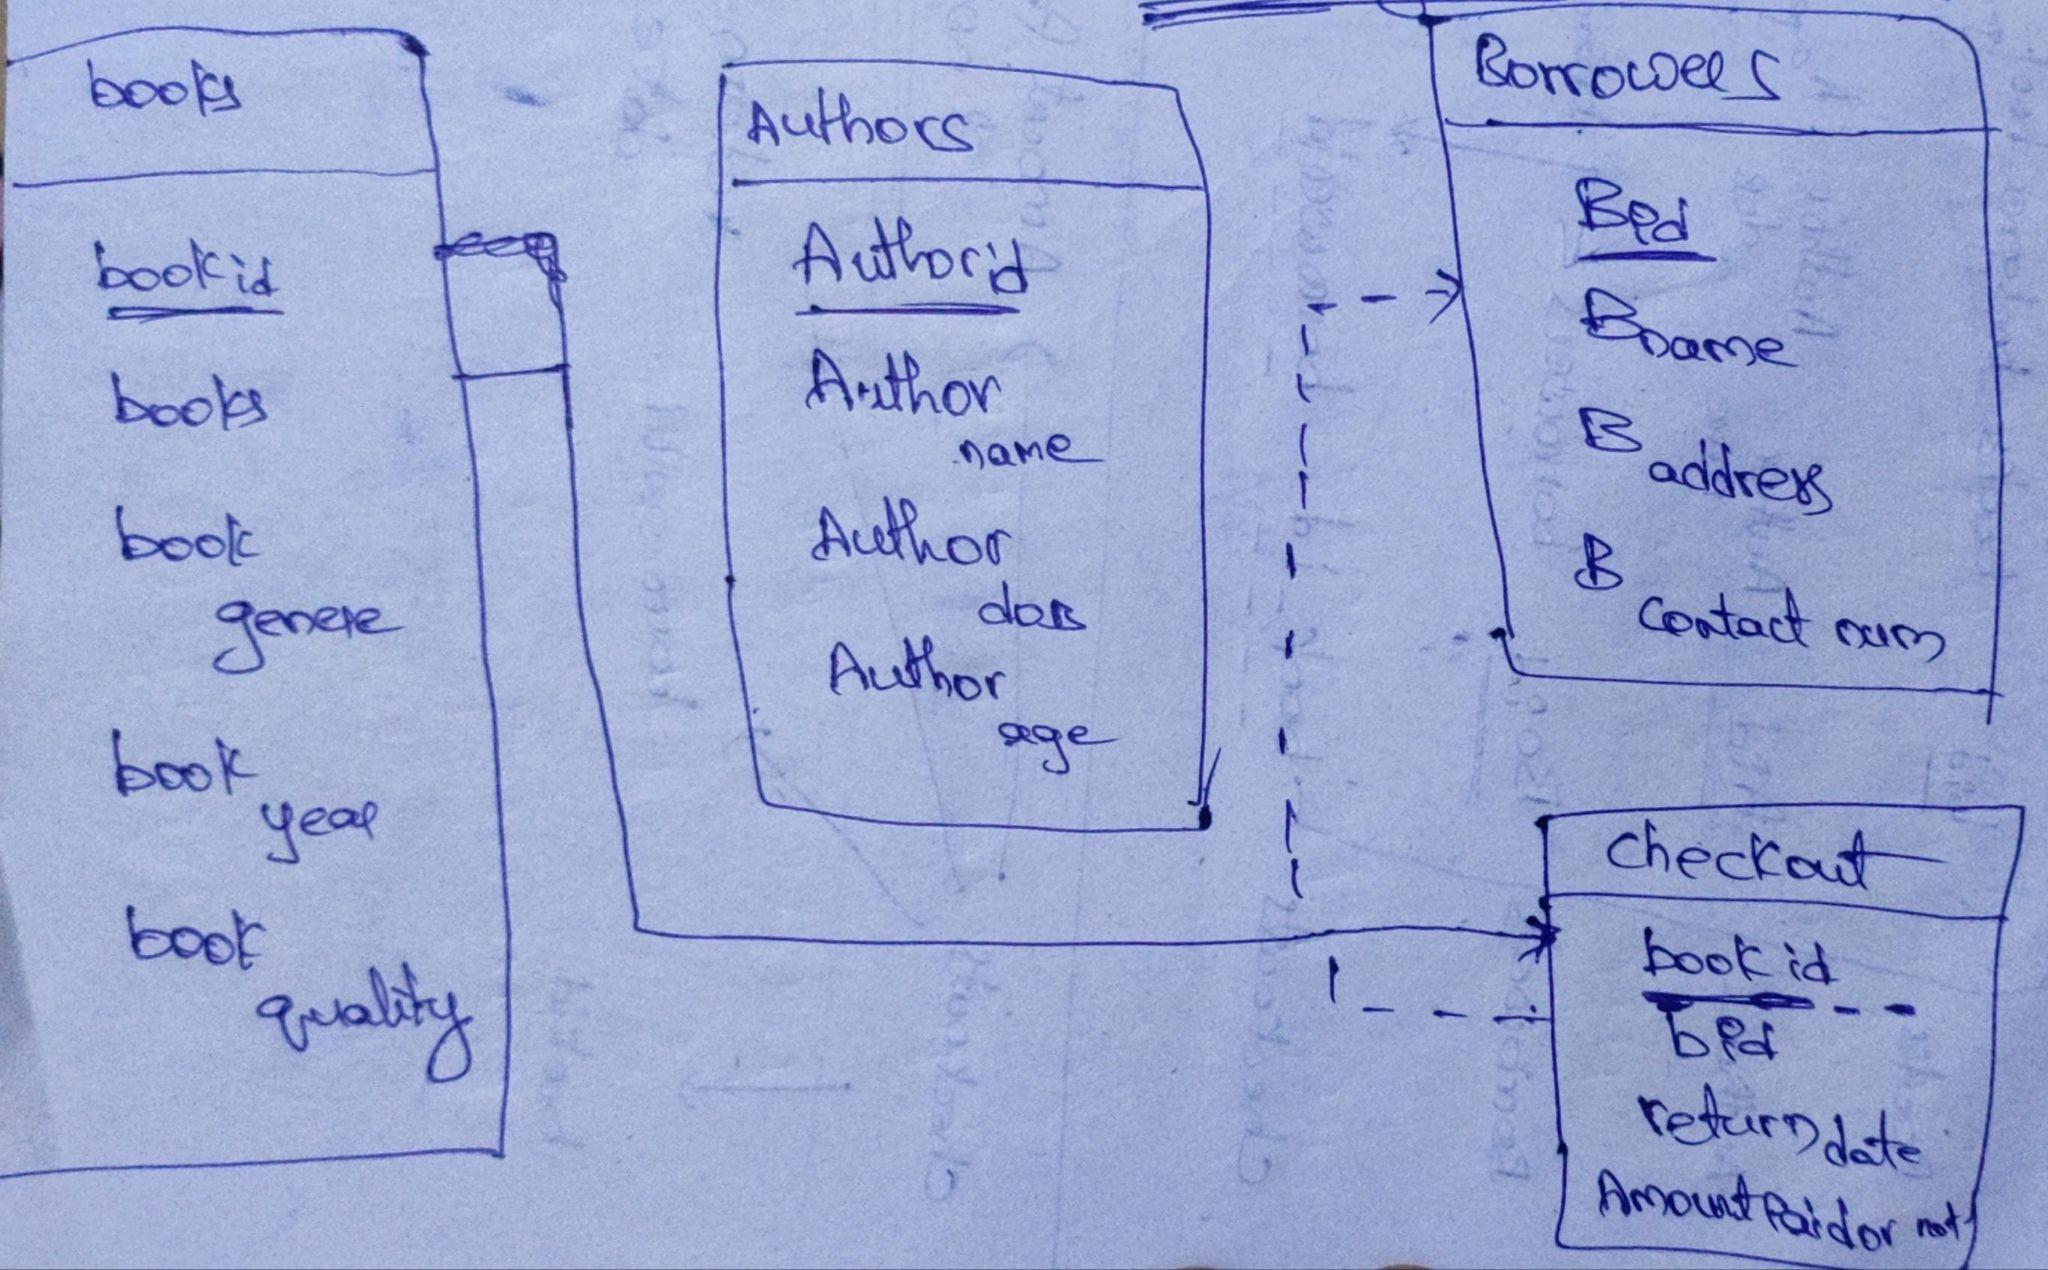 books
book id
books
book
genere
book
year
book
quality
Authors
Author id
Author
name
Author
dob
Author
age
Borrowers
Bid
Bname
B
address
B
Contact num
Checkout
book id
bid
return date
Amount Paid or not